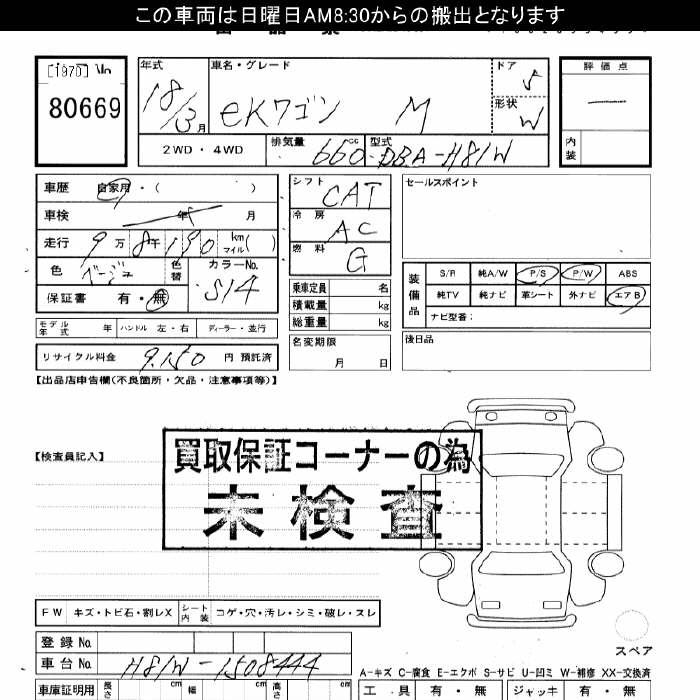 この車両は日曜日AM8:30からの搬出となります
[1970] No
80669
年式
18/3月
車名・グレード
eKワゴン M
ドア
5
形状
W
評価点
内装
2WD・4WD
排気量 660cc
型式 DBA-H81W
車歴 自家用・( )
車検 年 月
走行 9万8千190 km マイル( )
色 ベージュ
色替
カラーNo.
S14
保証書 有・無
モデル年式 年 ハンドル 左・右 ディーラー・並行
リサイクル料金 9.150 円 預託済
シフト CAT
冷房 AC
燃料 G
乗車定員 名
積載量 kg
総重量 kg
名変期限
月 日
セールスポイント
装備品
S/R 純A/W P/S P/W ABS
純TV 純ナビ 革シート 外ナビ エアB
ナビ型番:
後日品
【出品店申告欄(不良箇所・欠品・注意事項等)】
【検査員記入】
買取保証コーナーの為
未検査
FW キズ・トビ石・割レX シート内装 コゲ・穴・汚レ・シミ・破レ・スレ
登録 No
車台 No H81W-1508444
車庫証明用 長さ cm 幅 cm 高さ cm
スペア
A-キズ C-腐食 E-エクボ S-サビ U-凹ミ W-補修 XX-交換済
工具 有・無 ジャッキ 有・無